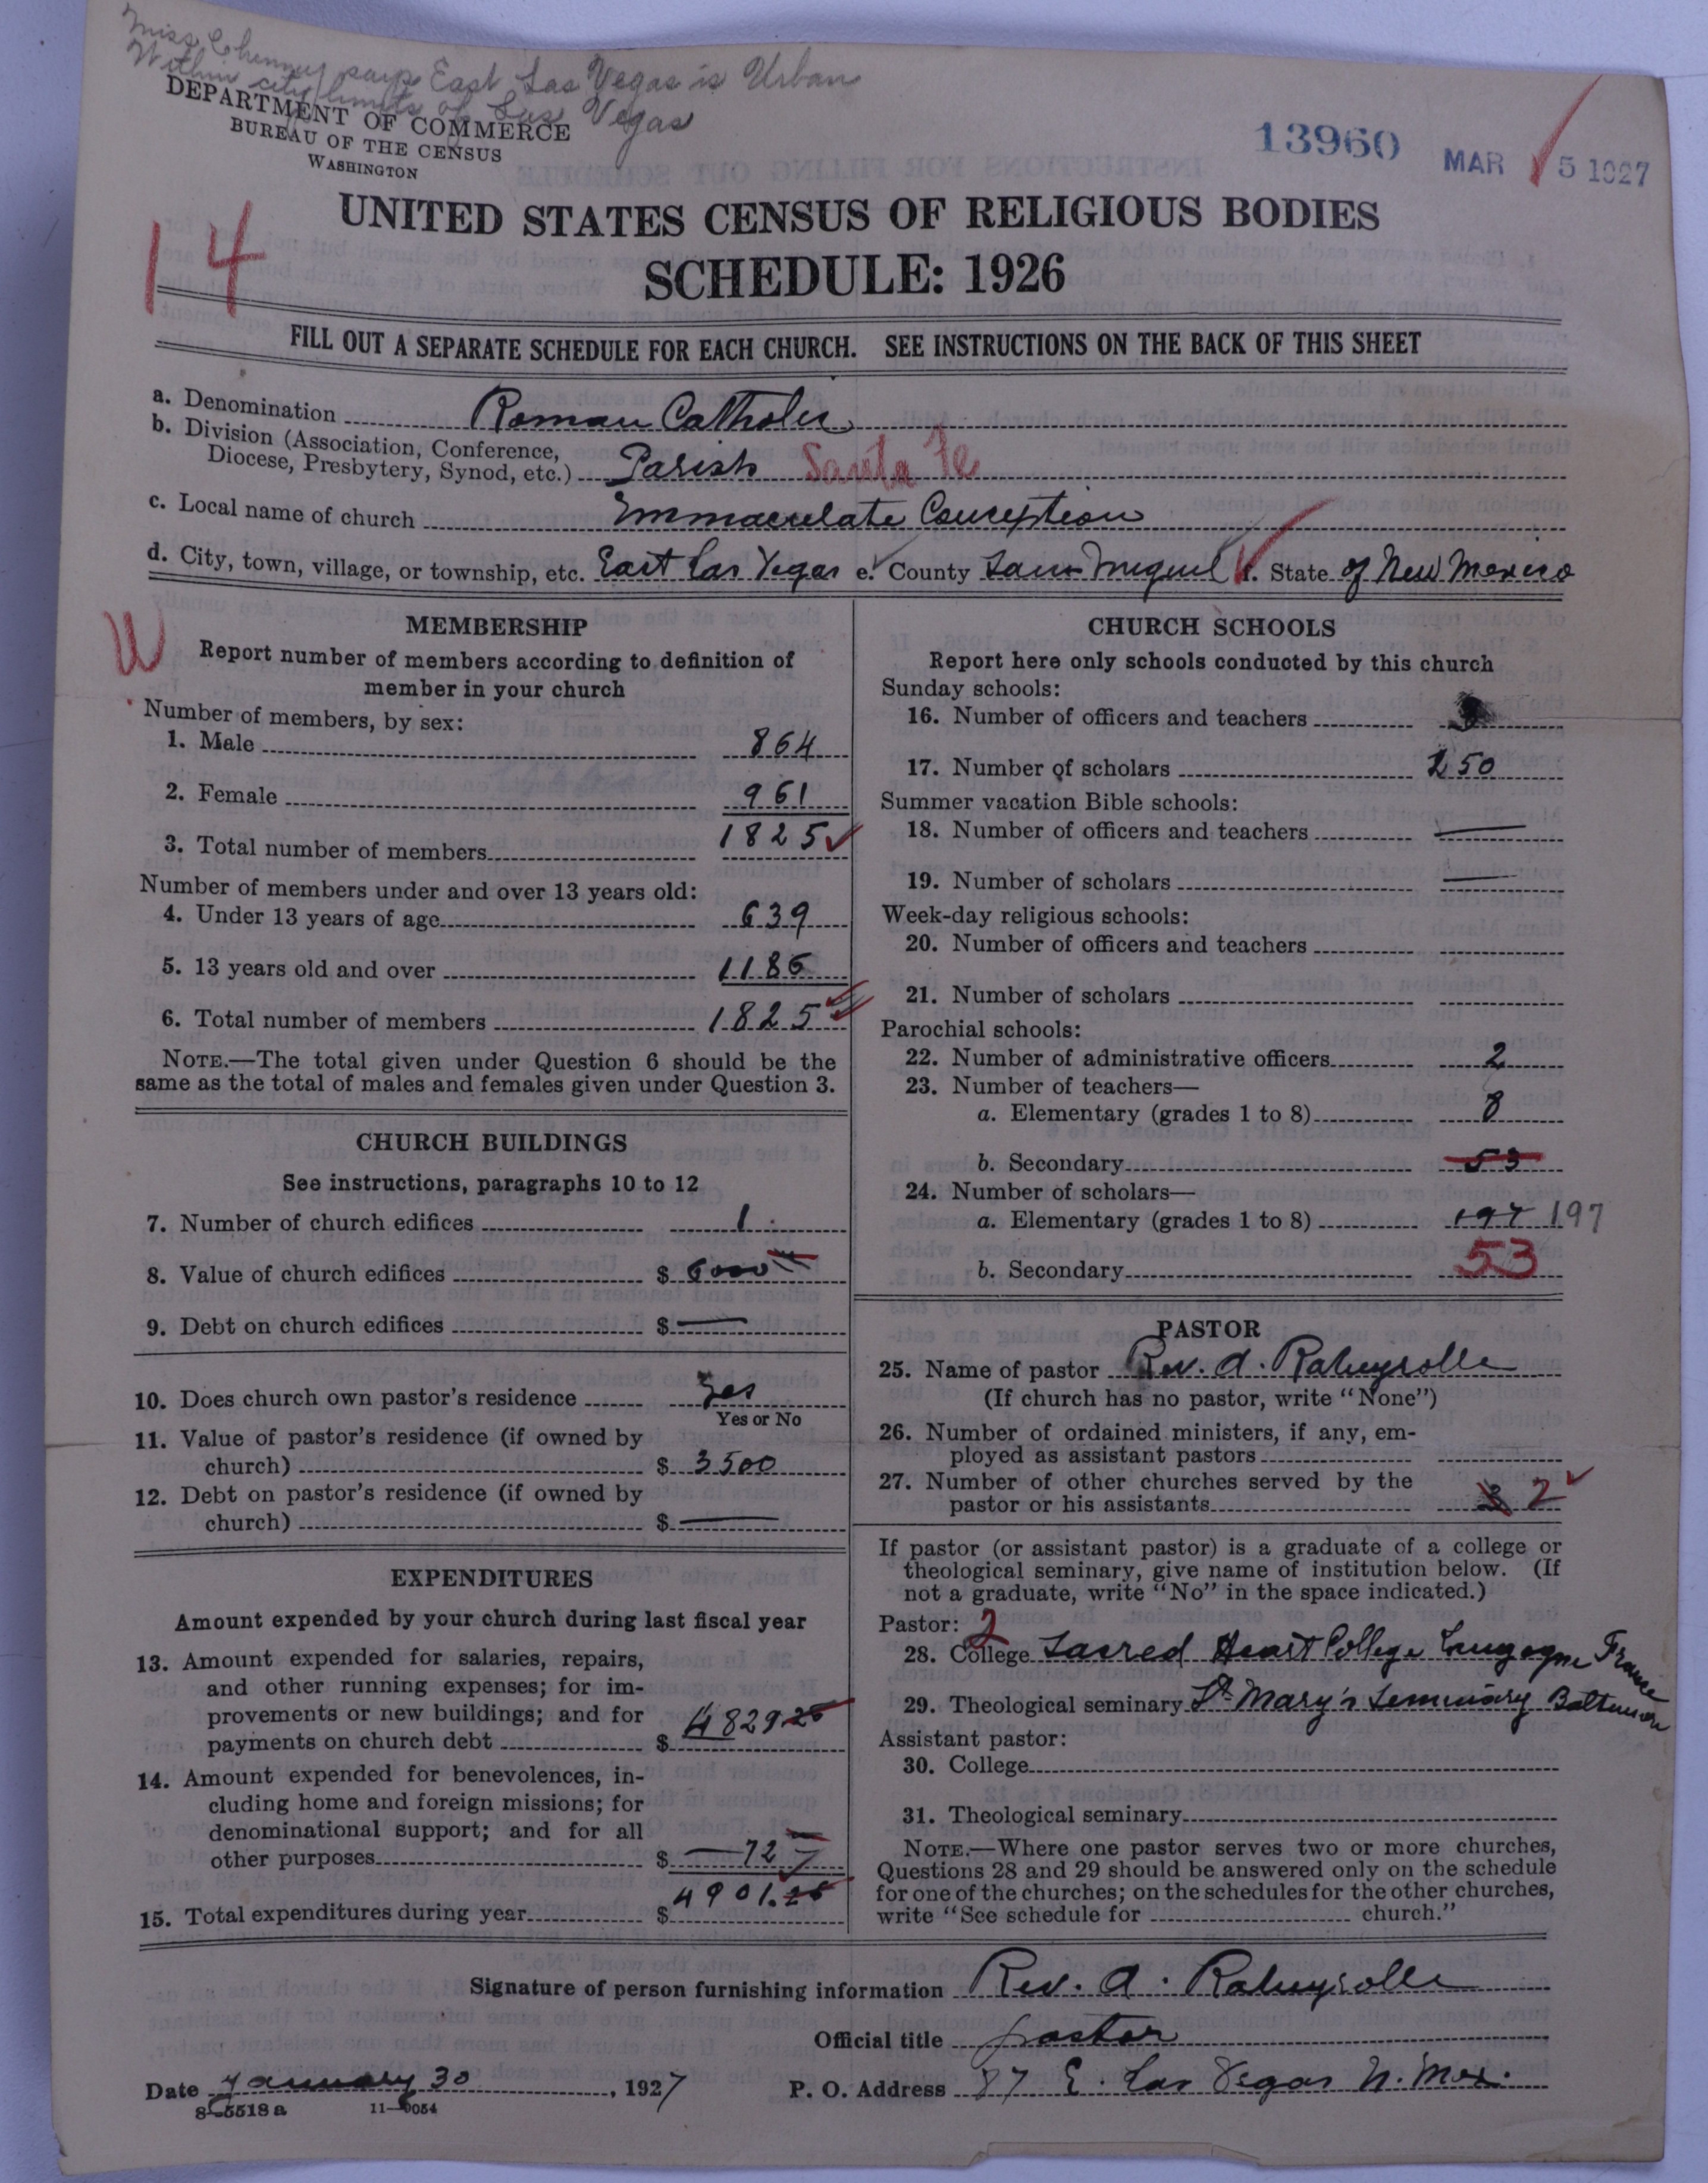 Miss Chenny says East Las Vegas is Urban
Within city limits of Las Vegas
DEPARTMENT OF COMMERCE
BUREAU OF THE CENSUS
WASHINGTON
13960 MAR 5 1927
UNITED STATES CENSUS OF RELIGIOUS BODIES
14
SCHEDULE: 1926
FILL OUT A SEPARATE SCHEDULE FOR EACH CHURCH. SEE INSTRUCTIONS ON THE BACK OF THIS SHEET
a. Denomination Roman Catholic
b. Division (Association, Conference,
Diocese, Presbytery, Synod, etc.) Parish Santa Fe
c. Local name of church Immaculate Conception
d. City, town, village, or township, etc. East Las Vegas e. County San Miguel f. State of New Mexico
U
MEMBERSHIP
Report number of members according to definition of
member in your church
Number of members, by sex:
1. Male 864
2. Female 961
3. Total number of members 1825
Number of members under and over 13 years old:
4. Under 13 years of age 639
5. 13 years old and over 1186
6. Total number of members 1825
NOTE.—The total given under Question 6 should be the
same as the total of males and females given under Question 3.
CHURCH BUILDINGS
See instructions, paragraphs 10 to 12
7. Number of church edifices 1
8. Value of church edifices $ 6000
9. Debt on church edifices $ —
10. Does church own pastor's residence Yes
Yes or No
11. Value of pastor's residence (if owned by
church) $ 3500
12. Debt on pastor's residence (if owned by
church) $ —
EXPENDITURES
Amount expended by your church during last fiscal year
13. Amount expended for salaries, repairs,
and other running expenses; for im-
provements or new buildings; and for
payments on church debt $ 4829.25
14. Amount expended for benevolences, in-
cluding home and foreign missions; for
denominational support; and for all
other purposes $ 72
15. Total expenditures during year $ 4901.25
CHURCH SCHOOLS
Report here only schools conducted by this church
Sunday schools:
16. Number of officers and teachers
17. Number of scholars 250
Summer vacation Bible schools:
18. Number of officers and teachers —
19. Number of scholars —
Week-day religious schools:
20. Number of officers and teachers
21. Number of scholars
Parochial schools:
22. Number of administrative officers 2
23. Number of teachers—
a. Elementary (grades 1 to 8) 8
b. Secondary 53
24. Number of scholars—
a. Elementary (grades 1 to 8) 197 197
b. Secondary 53
PASTOR
25. Name of pastor Rev. A. Rabeyrolle
(If church has no pastor, write "None")
26. Number of ordained ministers, if any, em-
ployed as assistant pastors
27. Number of other churches served by the
pastor or his assistants 3 2
If pastor (or assistant pastor) is a graduate of a college or
theological seminary, give name of institution below. (If
not a graduate, write "No" in the space indicated.)
Pastor: 2
28. College Sacred Heart College Langogne France
29. Theological seminary St. Mary's Seminary Baltimore
Assistant pastor:
30. College
31. Theological seminary
NOTE.—Where one pastor serves two or more churches,
Questions 28 and 29 should be answered only on the schedule
for one of the churches; on the schedules for the other churches,
write "See schedule for church."
Signature of person furnishing information Rev. A. Rabeyrolle
Official title pastor
Date January 30, 1927 P. O. Address 87 E. Las Vegas N. Mex.
8-5518 a 11-9054